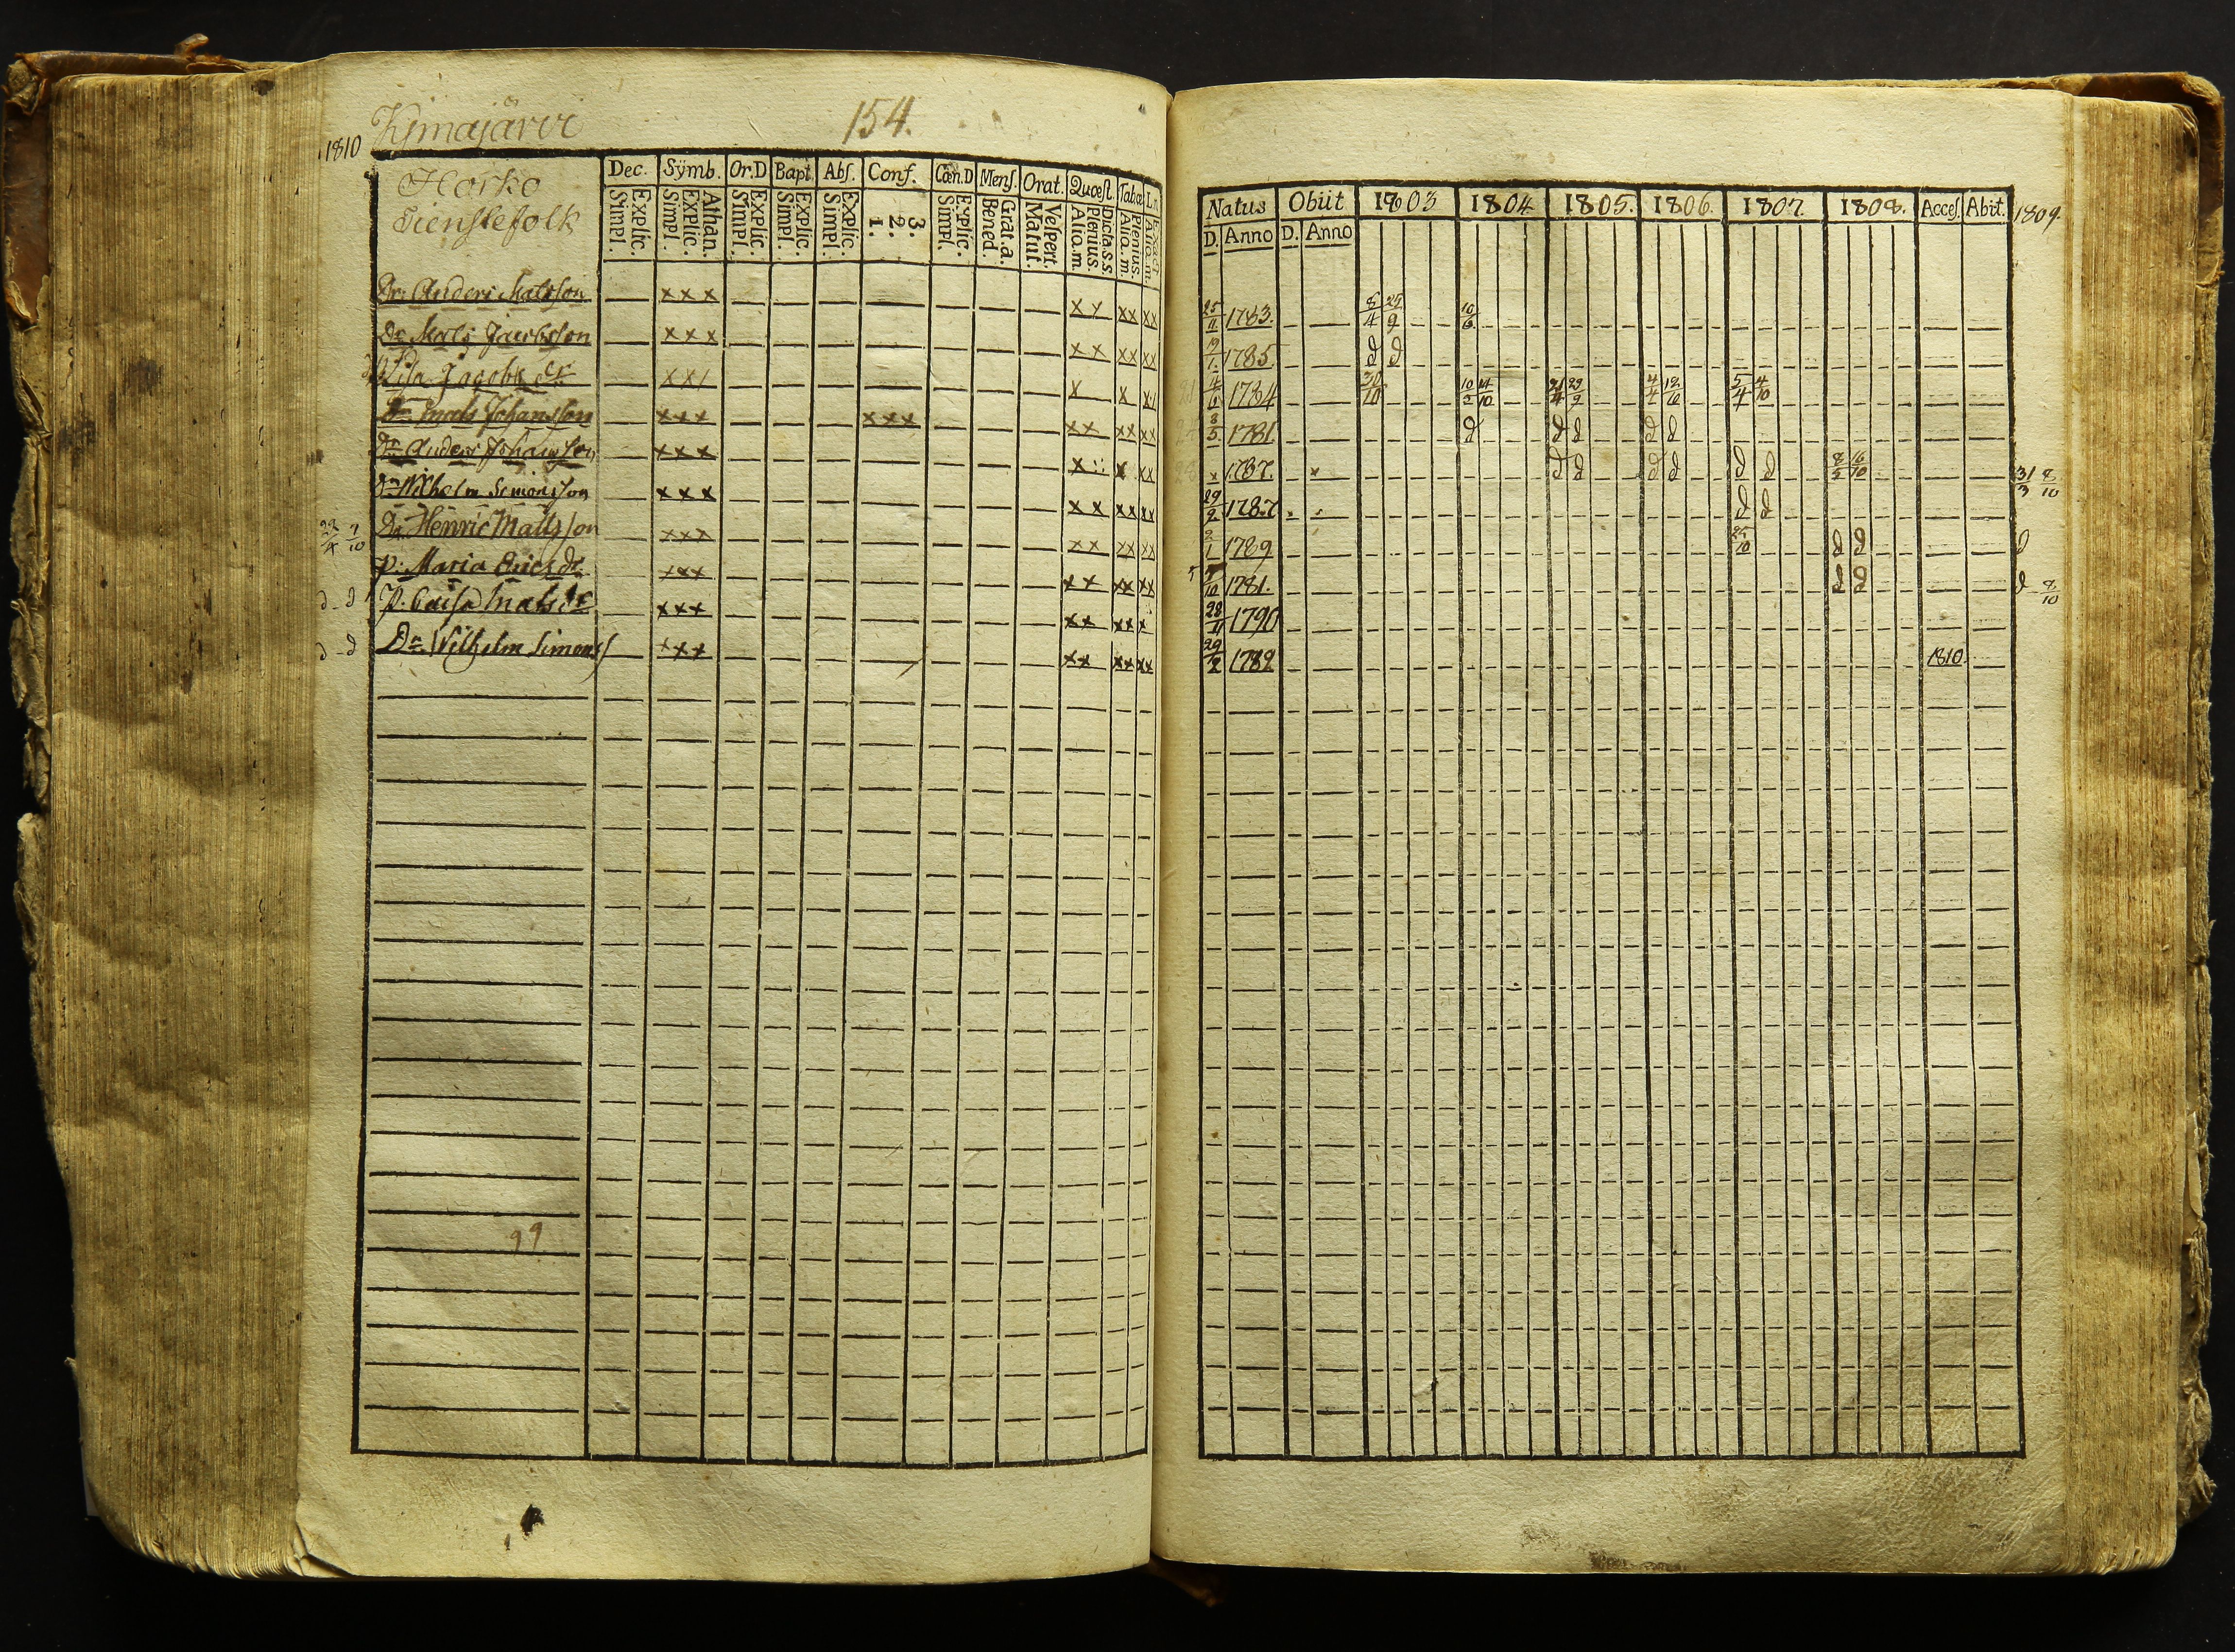 1810 Kjmajärvi 154.
Horko
Tienstefolk
Dec. Symb. Or.D Bapt. Abſ. Conf. Cœn.D Menſ. Orat. Quœſt. Tabœ Ln.
Explic. Simpl. Athan. Explic. Simpl. Explic. Simpl. Explic. Simpl. Explic. Simpl. 3. 2. 1. Explic. Simpl. Grat.a. Bened. Veſpert. Matut. Dicta.s.s. Plenius. Alia.m. Plenius. Alia.m. Exact. Alia.m.
Dr. Anders Matsſon xxx xx xx xx
Dr Mats Jacobsſon xxx xx xx xx
Lisa Jagobs dr xx/ x x x/
Dr Mats Johansſon xxx xxx xx xx xx
Dr Anders Johansſon xxx x x xx
Dr Wilhelm Simonsſon xxx xx xx xx
22/4 7/10 Dr Henric Mattsſon xxx xx xx xx
p. Maria Erics dr xxx xx xx xx
d - d P. Caisa Mats dr xxx xx xx x
d - d Dr Wilhelm Simonsſ xxx xx xx xx
99
Natus Obiit 1803 1804 1805. 1806. 1807. 1808. Acceſ. Abiit. 1809.
D. Anno D. Anno
25/11 1783. 8/4 25/9 10/6
19/1 1785. d d
4/6 1784 30/10 10/2 14/10 21/4 29/9 4/4 12/6 5/4 4/10
3/5 1781. d d d d d
x 1787. x d d d d d d 8/5 16/10 31/3 8/10
29/2 1787 d d
2/1 1789 25/10 d d d
10 1781. d d d 8/10
28/11 1790
29/2 1782 1810.